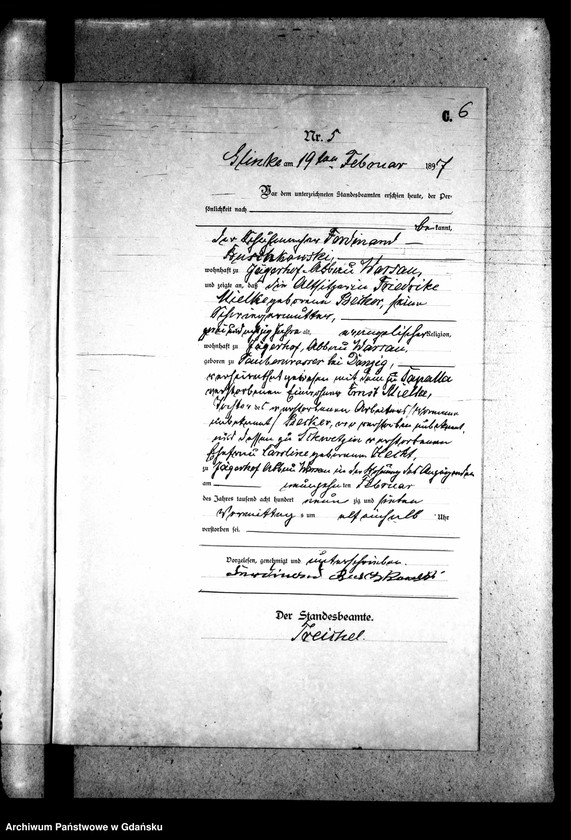 C. 6
Nr. 5
am 19ten Februar 1897
Vor dem unterzeichneten Standesbeamten erschien heute, der Per-
sönlichkeit nach
be kannt,
der Ferdinand
wohnhaft zu Jägerhof Abbau Warsau,
und zeigte an, daß die Altsitzerin Friedrike
Mielke geborene Becker, seine
Schwiegermutter,
alt, evangelischer Religion,
wohnhaft zu Jägerhof, Abbau Warsau,
geboren zu bei Danzig,
verheirathet gewesen mit dem zu
verstorbenen Einwohner Ernst Mielke,
Tochter des verstorbenen Arbeiters /Vorname
unbekannt/ Becker, verstorben unbekannt,
und dessen zu verstorbenen
Ehefrau Caroline geborenen Hecht,
zu Jägerhof Abbau Warsau in der Wohnung des Anzeigenden
am neunzehn ten Februar
des Jahres tausend acht hundert neun zig und sieben
Vormittag s um elf einhalb Uhr
verstorben sei.
Vorgelesen, genehmigt und unterschrieben.
Ferdinand
Der Standesbeamte.
Treichel.
Archiwum Państwowe w Gdańsku